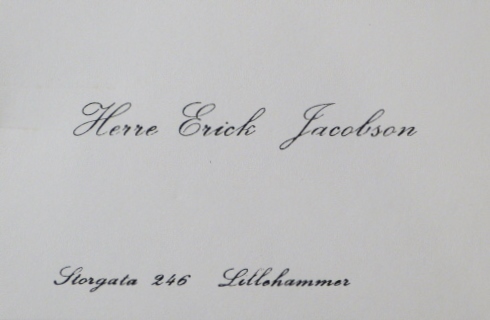 Herre Erick Jacobson
Storgata 246 Lillehammer